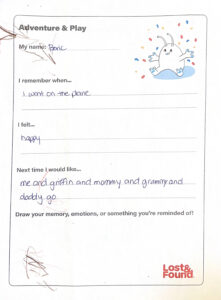 Adventure & Play
My name:
I remember when...
I went on the plane
I felt...
happy
Next time I would like...
me and griffin and mommy and grammy and
daddy go
Draw your memory, emotions, or something you're reminded of!
Lost&
Found!